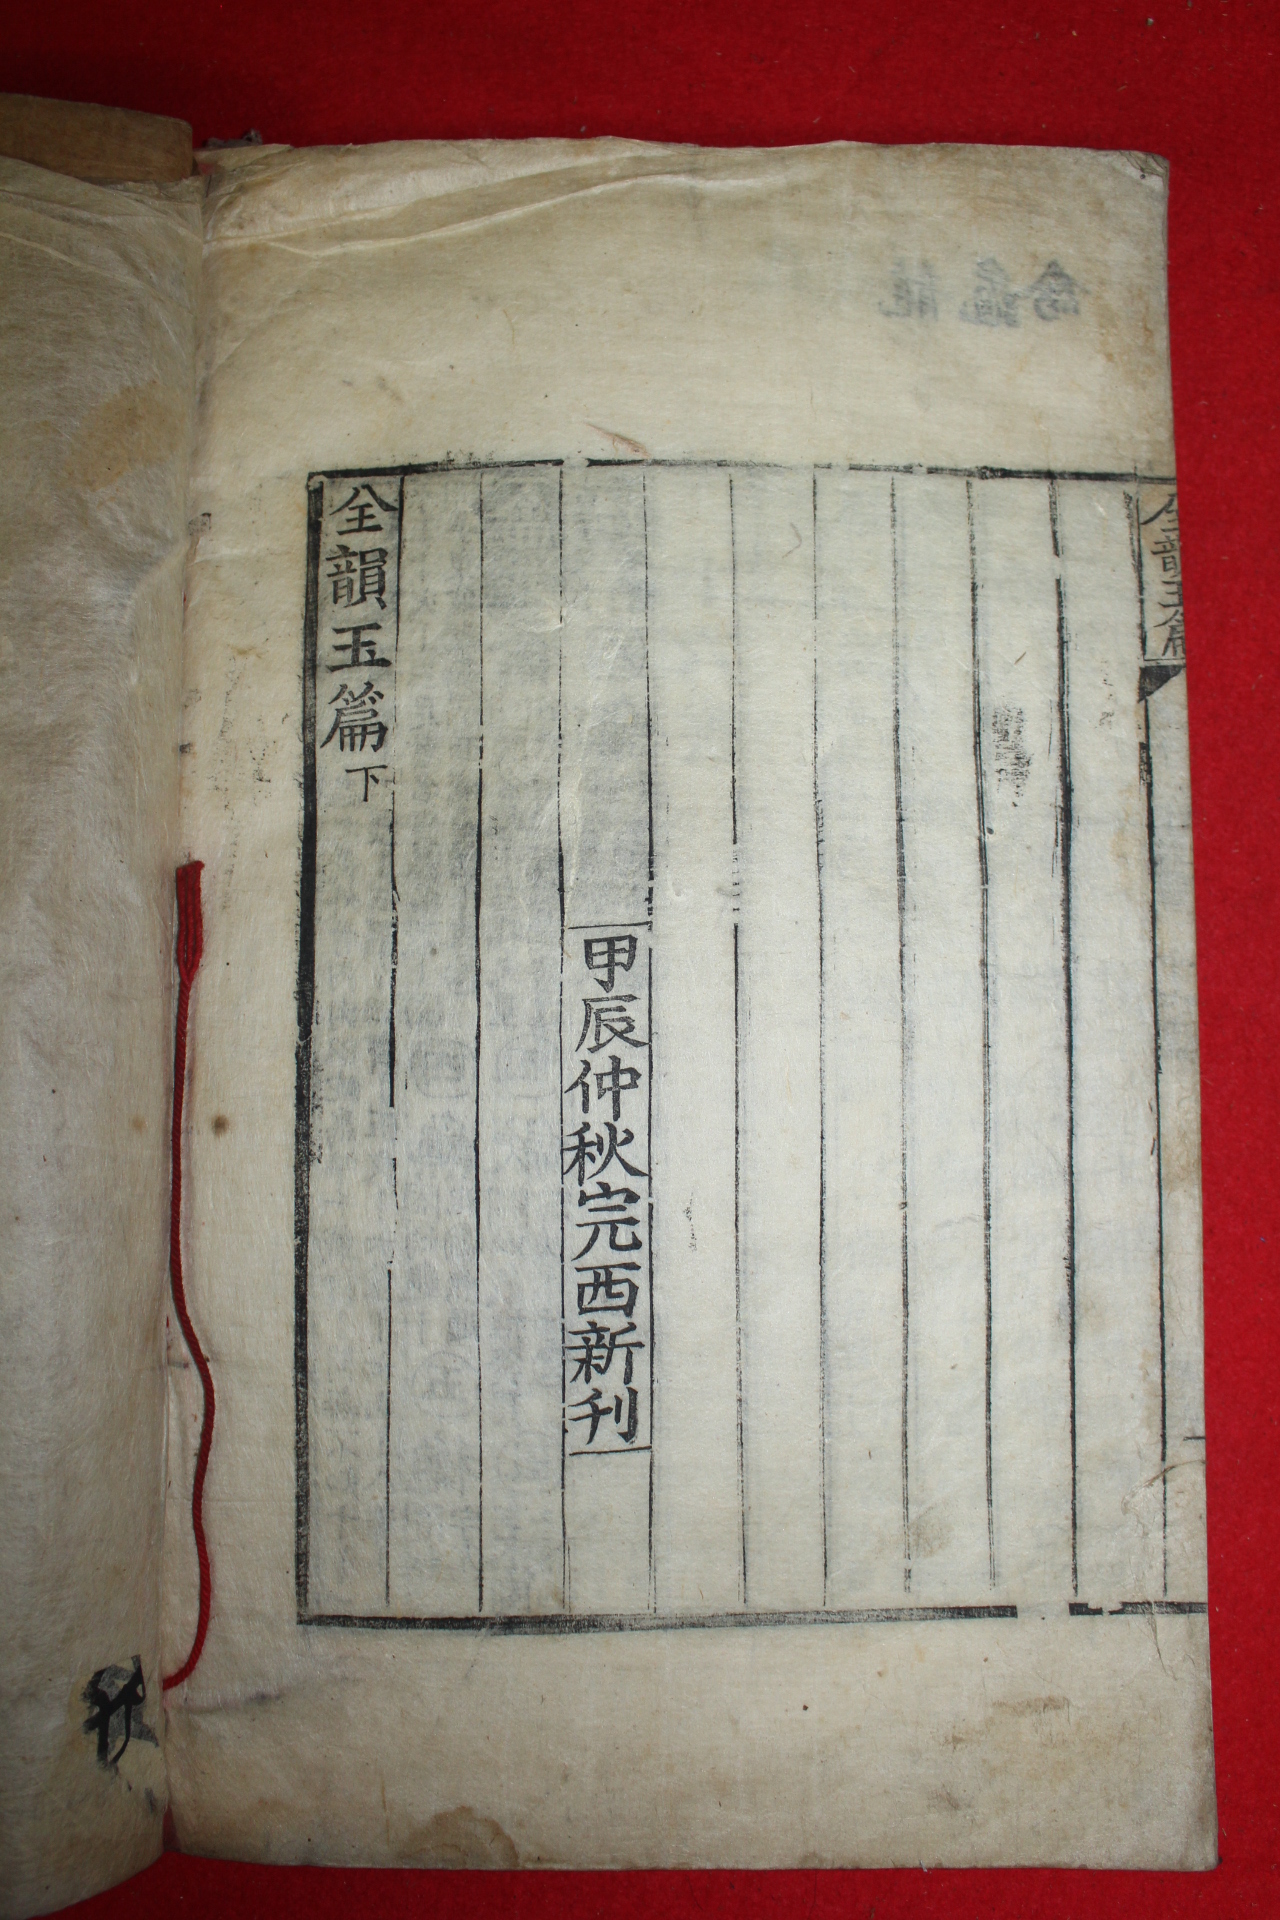 全韻玉篇
甲辰仲秋完西新刊
全韻玉篇下